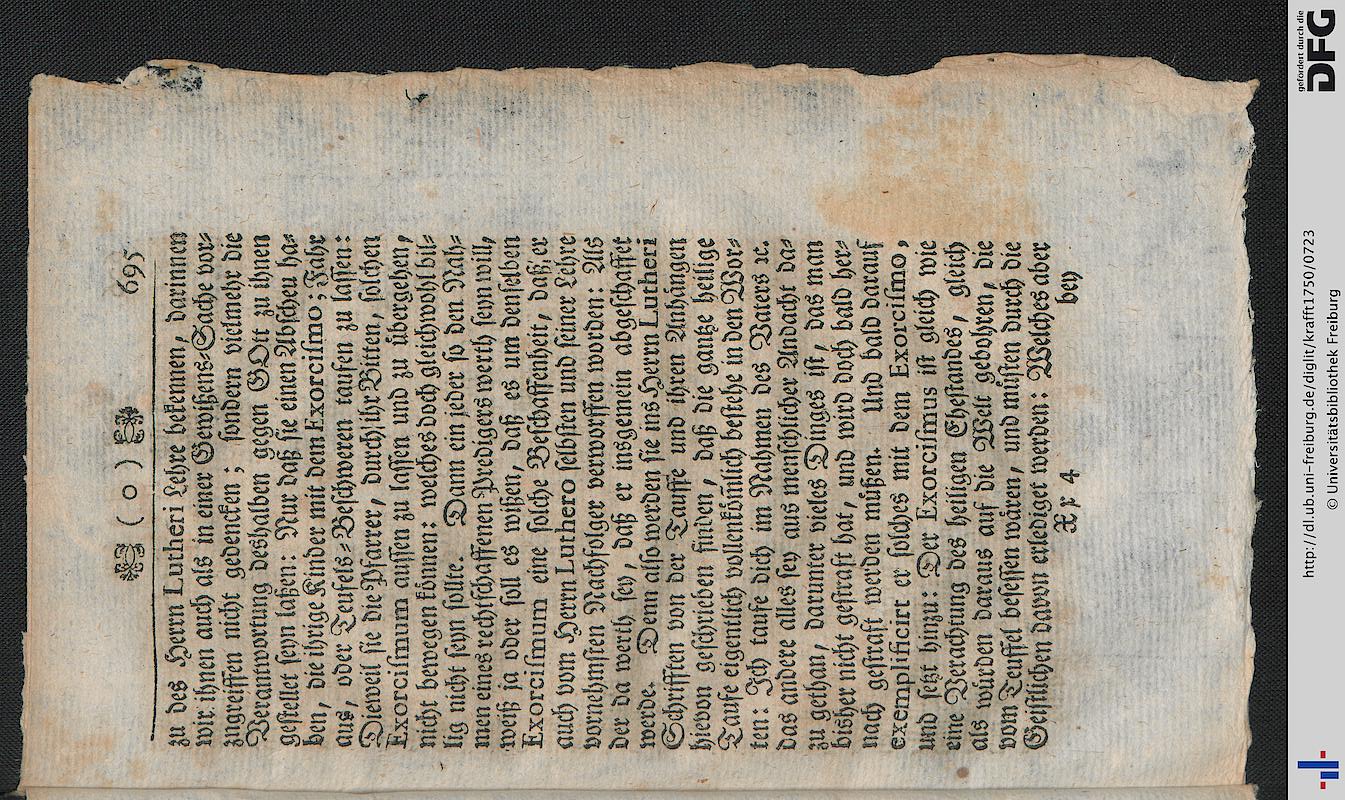 ( o ) 695
zu des Herrn Lutheri Lehre bekennen, darinnen
wir ihnen auch als in einer Gewißens-Sache vor-
zugreiffen nicht gedencken; sondern vielmehr die
Verantwortung deshalben gegen GOtt zu ihnen
gestellet seyn laßen: Nur daß sie einen Abscheu ha-
ben, die ihrige Kinder mit dem Exorcismo; Fahr
aus, oder Teufels-Beschweren taufen zu lassen:
Dieweil sie die Pfarrer, durch ihr Bitten, solchen
Exorcismum aussen zu lassen und zu übergehen,
nicht bewegen können: welches doch gleichwohl bil-
lig nicht seyn sollte. Dann ein jeder so den Nah-
men eines rechtschaffenen Predigers werth seyn will,
weiß ja oder soll es wißen, daß es um denselben
Exorcismum eine solche Beschaffenheit, daß er
auch vom Herrn Luthero selbsten und seiner Lehre
vornehmsten Nachfolger verworffen worden: Als
der da werth sey, daß er insgemein abgeschaffet
werde. Denn also werden sie ins Herrn Lutheri
Schrifften von der Tauffe und ihren Anhängen
hievon geschrieben finden, daß die gantze heilige
Taufe eigentlich vollenkömlich bestehe in den Wor-
ten: Ich taufe dich im Nahmen des Vaters ꝛc.
das andere alles sey aus menschlicher Andacht da-
zu gethan, darunter vieles Dinges ist, das man
bisher nicht gestraft hat, und wird doch bald her-
nach gestraft werden müßen. Und bald darauf
exemplificirt er solches mit dem Exorcismo,
und setzt hinzu: Der Exorcismus ist gleich wie
eine Verachtung des heiligen Ehestandes, gleich
als würden daraus auf die Welt gebohren, die
vom Teuffel besessen wären, und müsten durch die
Geistlichen davon erlediget werden: Welches aber
Xx 4 bey
http://dl.ub.uni-freiburg.de/diglit/krafft1750/0723
© Universitätsbibliothek Freiburg
gefördert durch die
DFG